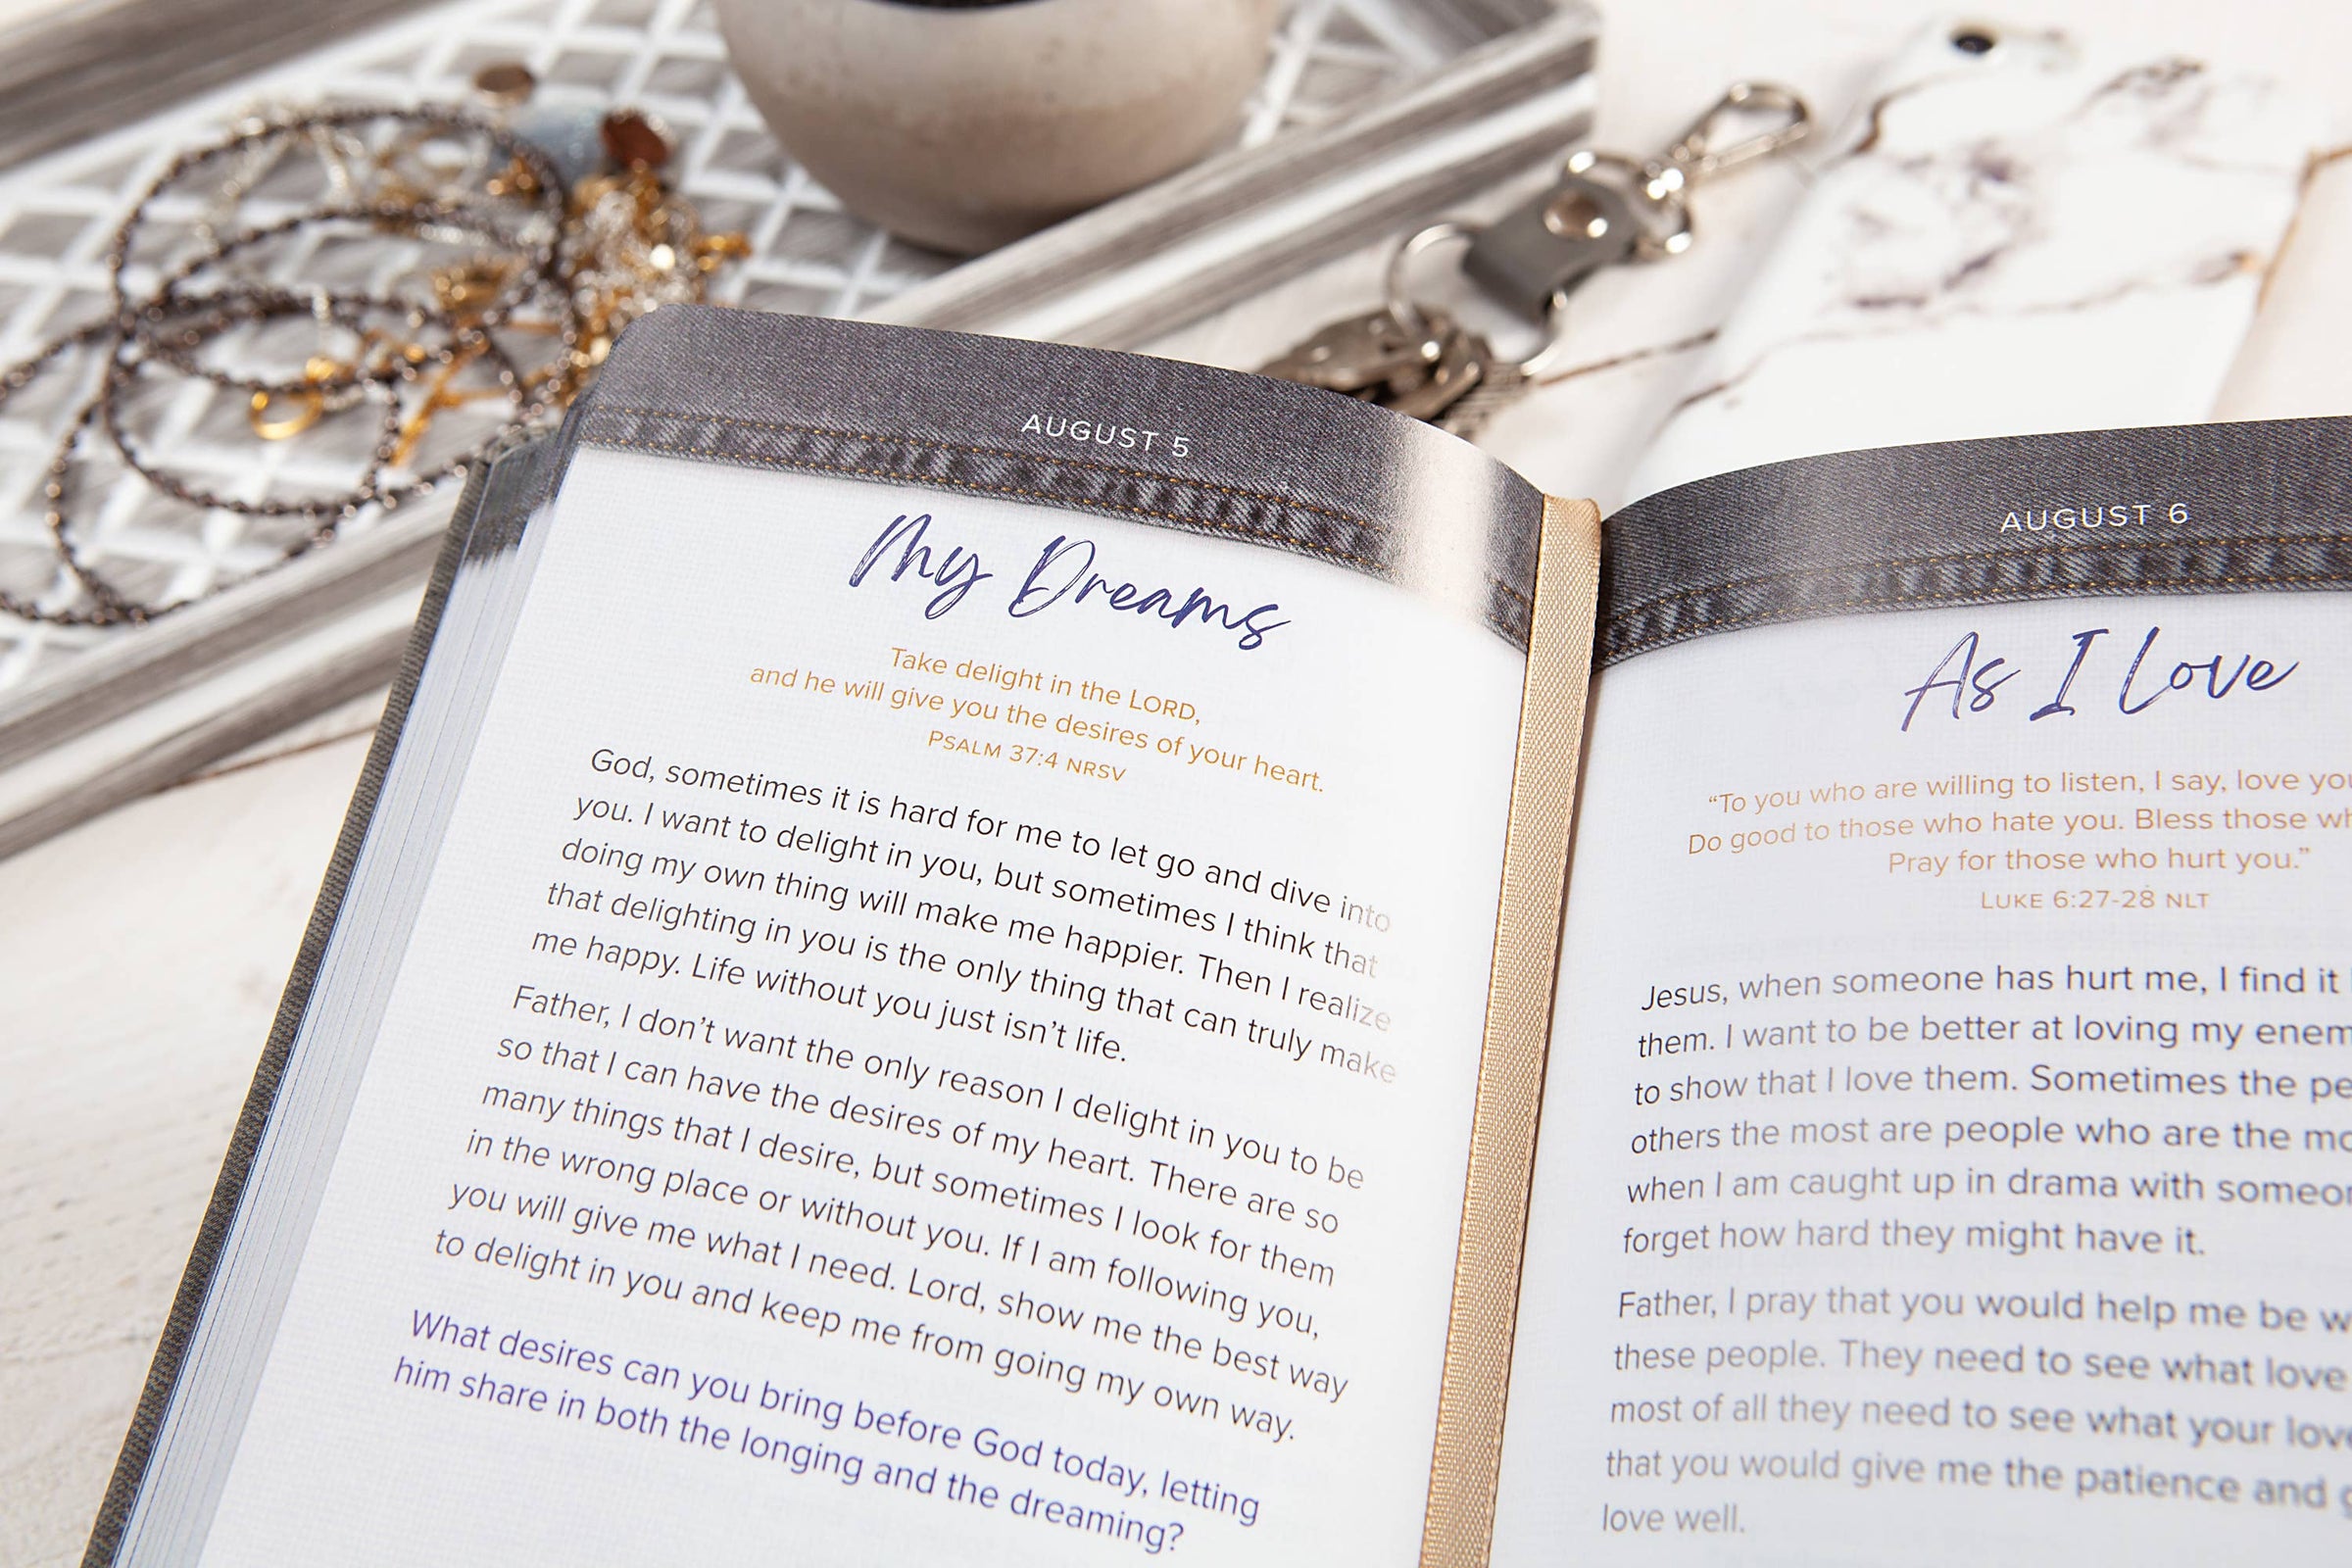 AUGUST 5
My Dreams
Take delight in the LORD,
and he will give you the desires of your heart.
PSALM 37:4 NRSV
God, sometimes it is hard for me to let go and dive into
you. I want to delight in you, but sometimes I think that
doing my own thing will make me happier. Then I realize
that delighting in you is the only thing that can truly make
me happy. Life without you just isn't life.
Father, I don't want the only reason I delight in you to be
so that I can have the desires of my heart. There are so
many things that I desire, but sometimes I look for them
in the wrong place or without you. If I am following you,
you will give me what I need. Lord, show me the best way
to delight in you and keep me from going my own way.
What desires can you bring before God today, letting
him share in both the longing and the dreaming?
AUGUST 6
As I Love
“To you who are willing to listen, I say, love
Do good to those who hate you. Bless those
Pray for those who hurt you.”
LUKE 6:27-28 NLT
Jesus, when someone has hurt me, I find it
them. I want to be better at loving my
to show that I love them. Sometimes the
others the most are people who are the
when I am caught up in drama with
forget how hard they might have it.
Father, I pray that you would help me be
these people. They need to see what love
most of all they need to see what your
that you would give me the patience and
love well.